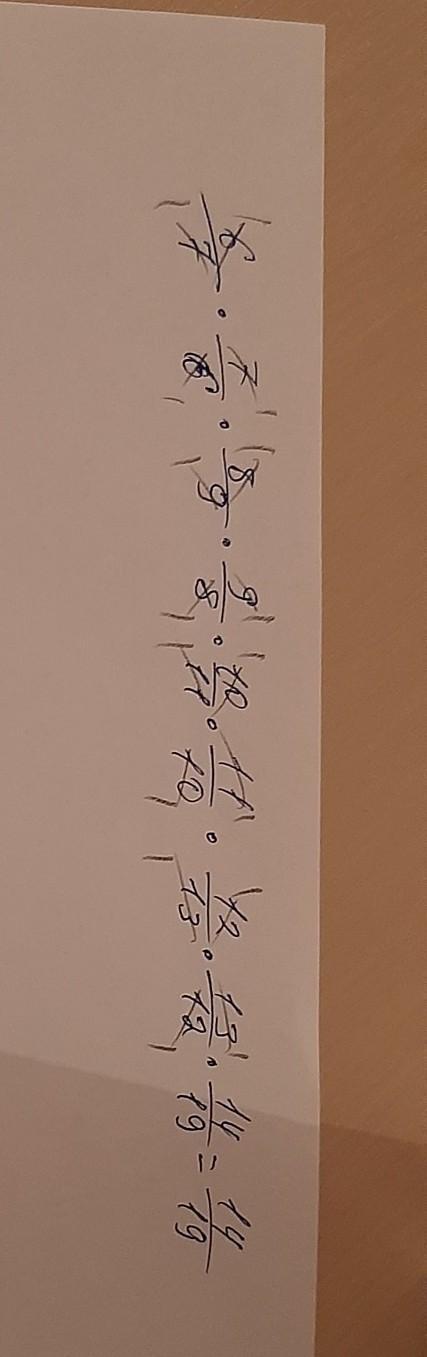 6/7 · 7/6 · 8/9 · 9/8 · 10/11 · 11/10 · 12/13 · 13/12 · 14/19 = 14/19